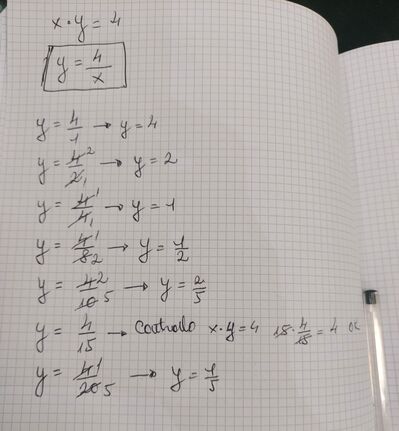 x · y = 4
y = 4/x
y = 4/1 → y = 4
y = 4²/2₁ → y = 2
y = 4¹/4₁ → y = 1
y = 4¹/8₂ → y = 1/2
y = 4²/10₅ → y = 2/5
y = 4/15 → Controllo x · y = 4 15 · 4/15 = 4 OK
y = 4¹/20₅ → y = 1/5